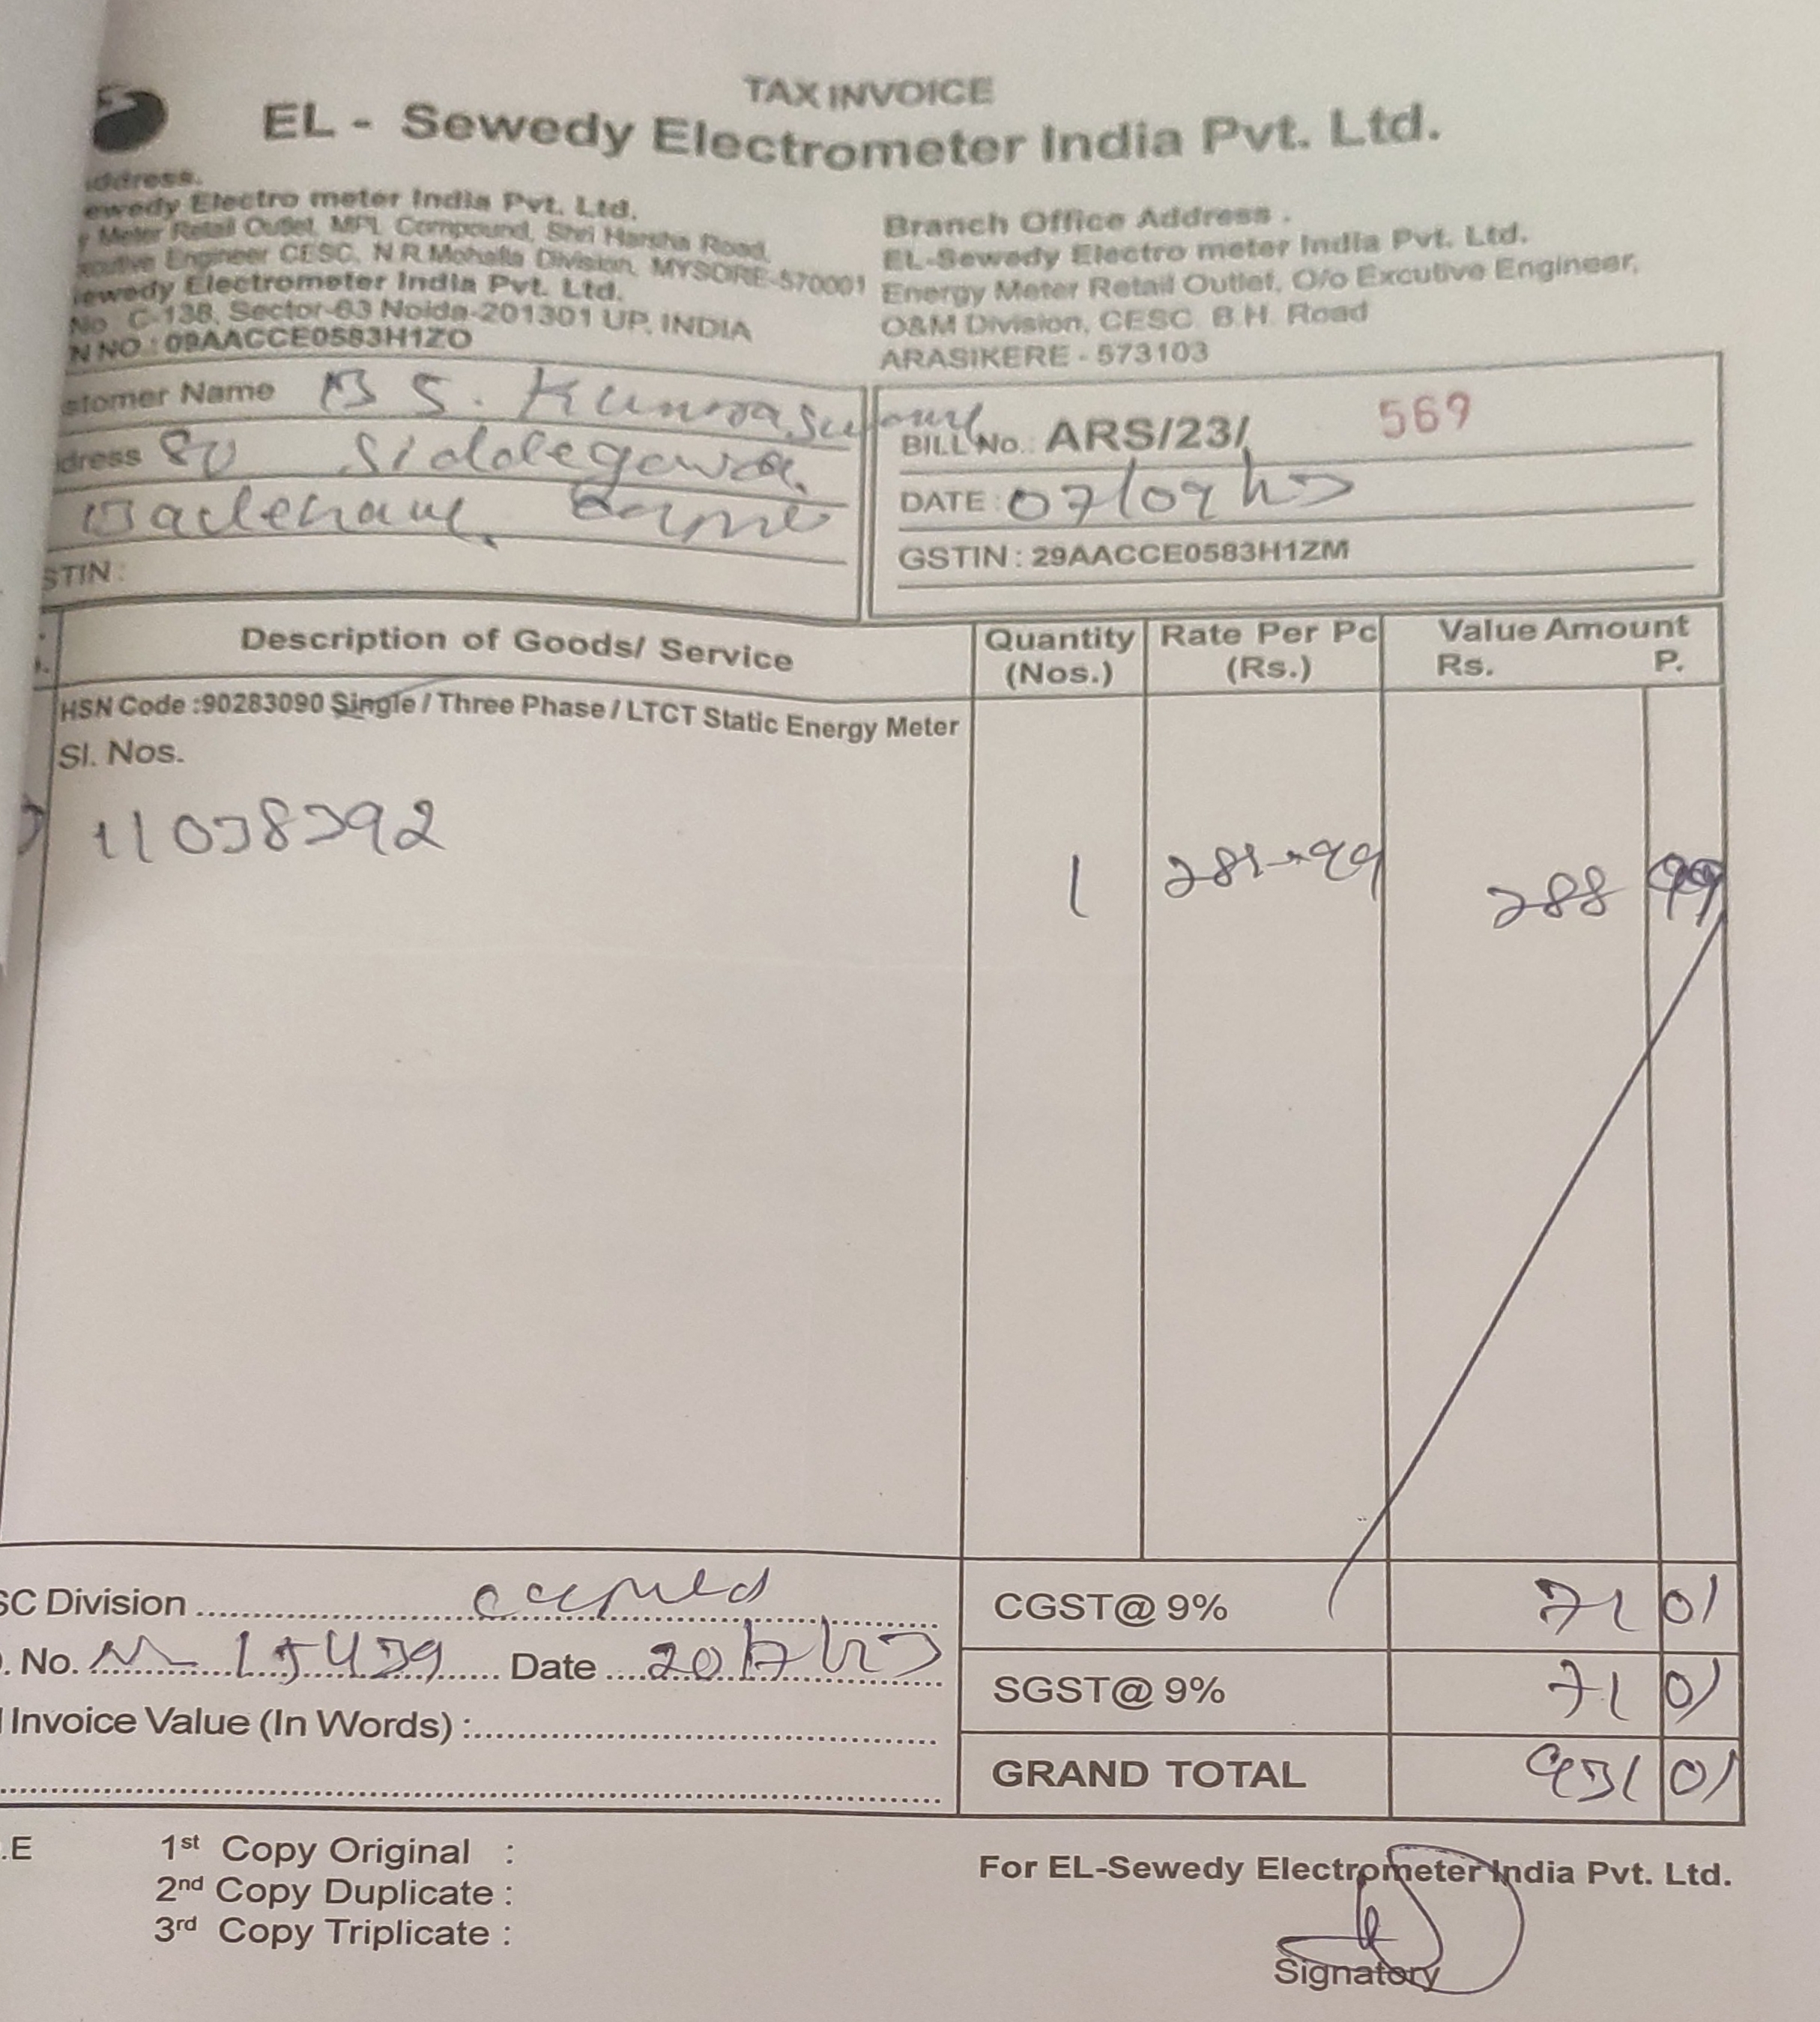 TAX INVOICE
EL - Sewedy Electrometer India Pvt. Ltd.
ddress.
ewedy Electro meter India Pvt. Ltd.
y Meter Retail Outlet, MPL Compound, Shri Harsha Road,
ecutive Engineer CESC, N.R.Mohalla Division, MYSORE-570001
ewedy Electrometer India Pvt. Ltd.
No. C-138, Sector-63 Noida-201301 UP, INDIA
N NO.: 09AACCE0583H1ZO
Branch Office Address .
EL-Sewedy Electro meter India Pvt. Ltd.
Energy Meter Retail Outlet, O/o Excutive Engineer,
O&M Division, CESC B.H. Road
ARASIKERE - 573103
stomer Name B S. Kumaraswamy
dress So Siddegowda
STIN :
BILL No.: ARS/23/ 569
DATE : 07/09/23
GSTIN : 29AACCE0583H1ZM
Description of Goods/ Service
Quantity (Nos.)
Rate Per Pc (Rs.)
Value Amount
Rs. P.
HSN Code :90283090 Single / Three Phase / LTCT Static Energy Meter
Sl. Nos.
11038392
1
288 99
SC Division
. No. 15439 Date
Invoice Value (In Words) :
CGST@ 9% 71 01
SGST@ 9% 71 01
GRAND TOTAL 931 01
.E
1st Copy Original :
2nd Copy Duplicate :
3rd Copy Triplicate :
For EL-Sewedy Electrometer India Pvt. Ltd.
Signatory